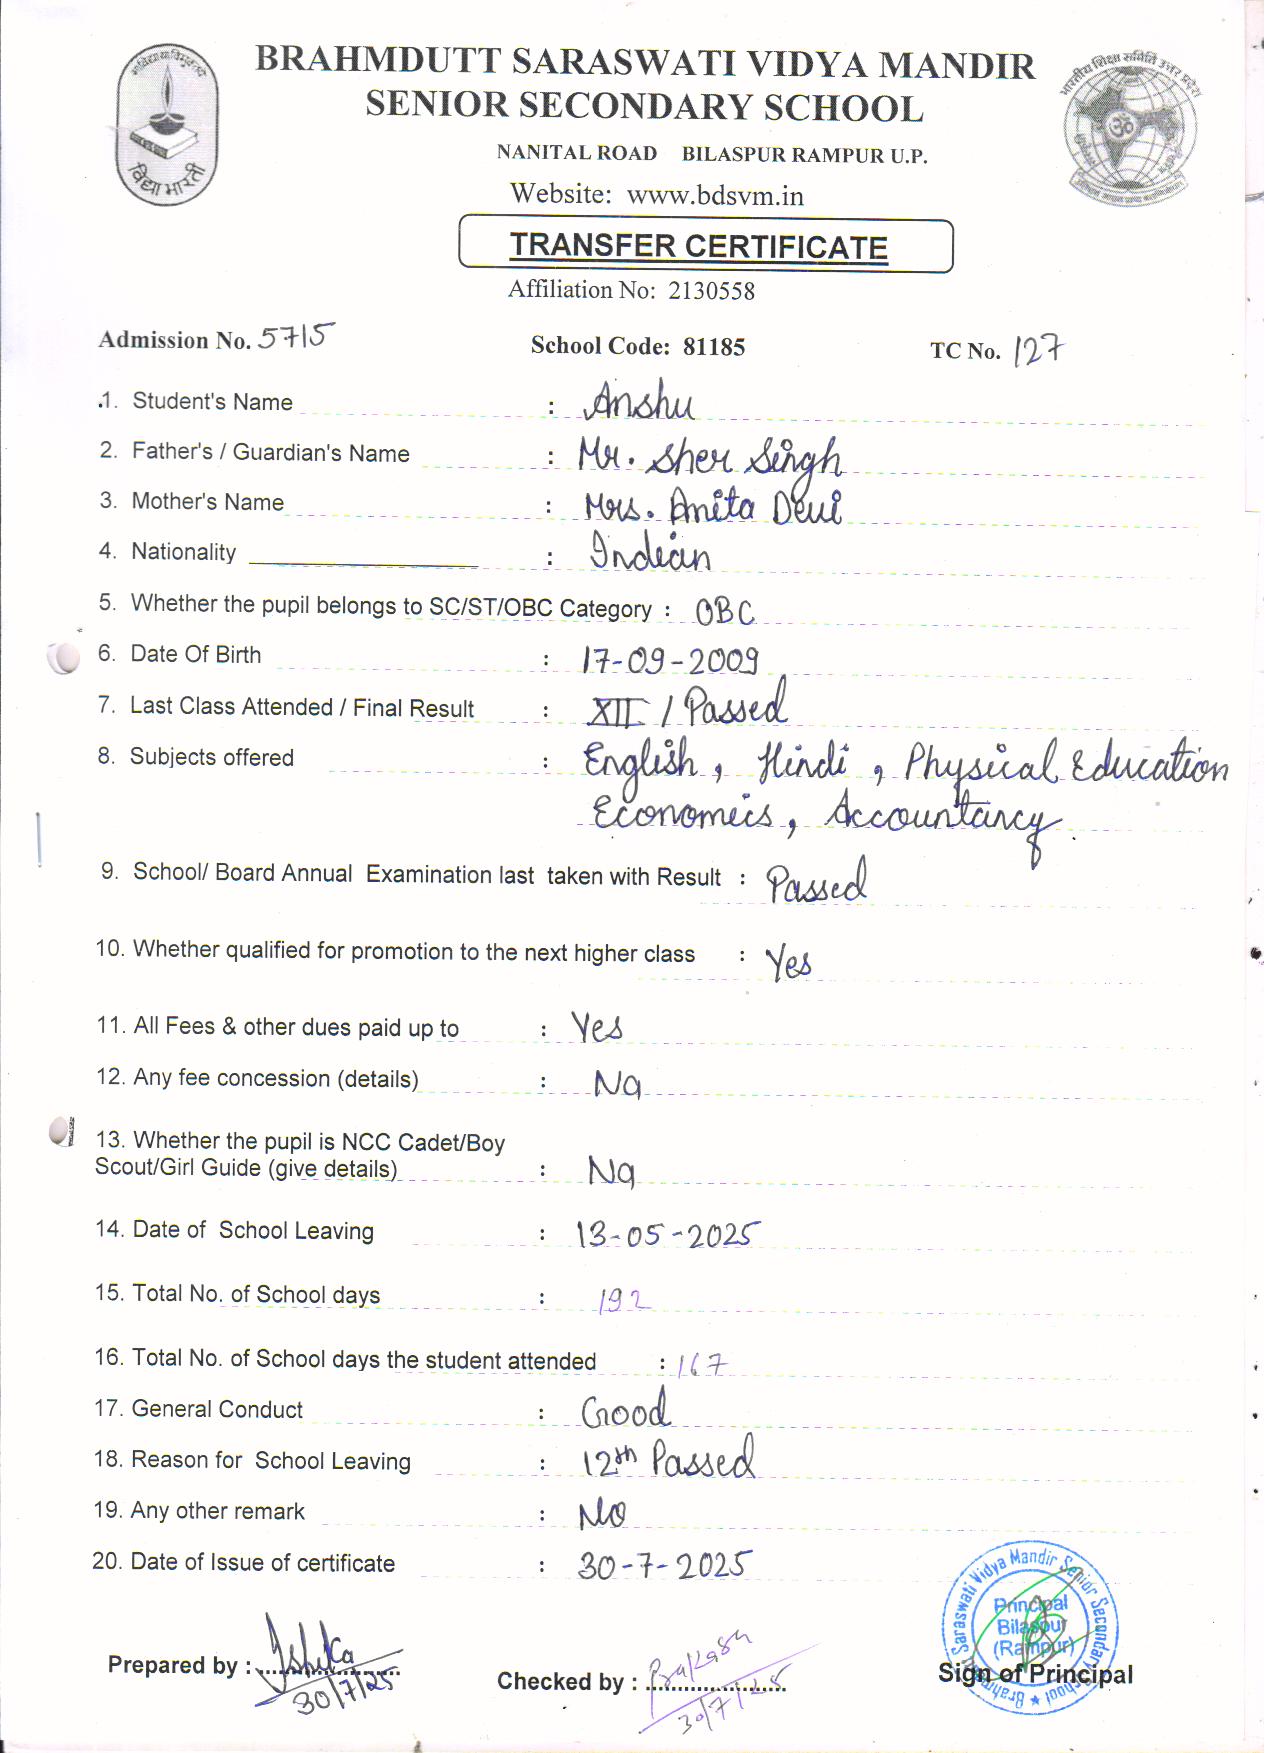 BRAHMDUTT SARASWATI VIDYA MANDIR
SENIOR SECONDARY SCHOOL
NANITAL ROAD BILASPUR RAMPUR U.P.
Website: www.bdsvm.in
विद्या भारती
भारतीय शिक्षा समिति उत्तर प्रदेश
TRANSFER CERTIFICATE
Affiliation No: 2130558
Admission No. 5715 School Code: 81185 TC No. 127
1. Student's Name : Anshu
2. Father's / Guardian's Name : Mr. Sher Singh
3. Mother's Name : Mrs. Anita Devi
4. Nationality : Indian
5. Whether the pupil belongs to SC/ST/OBC Category : OBC
6. Date Of Birth : 17-09-2009
7. Last Class Attended / Final Result : XII / Passed
8. Subjects offered : English, Hindi, Physical Education
Economics, Accountancy
9. School/ Board Annual Examination last taken with Result : Passed
10. Whether qualified for promotion to the next higher class : Yes
11. All Fees & other dues paid up to : Yes
12. Any fee concession (details) : No
13. Whether the pupil is NCC Cadet/Boy
Scout/Girl Guide (give details) : No
14. Date of School Leaving : 13-05-2025
15. Total No. of School days : 192
16. Total No. of School days the student attended : 167
17. General Conduct : Good
18. Reason for School Leaving : 12th Passed
19. Any other remark : No
20. Date of Issue of certificate : 30-7-2025
Saraswati Vidya Mandir Senior Secondary School
Principal
Bilaspur
(Rampur)
Prepared by : Ishika
30/7/25
Checked by : Prakash
30/7/25
Sign of Principal